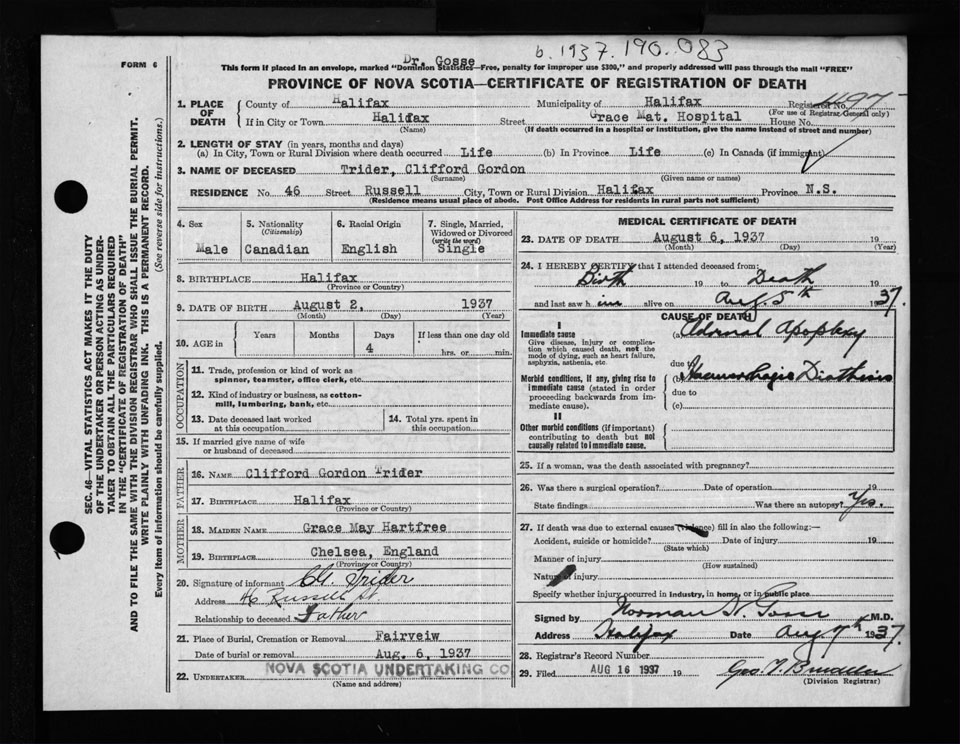 b. 1937. 190. 083
Dr. Gosse
FORM 6
This form if placed in an envelope, marked "Dominion Statistics—Free, penalty for improper use $300," and properly addressed will pass through the mail "FREE"
PROVINCE OF NOVA SCOTIA—CERTIFICATE OF REGISTRATION OF DEATH
SEC. 46—VITAL STATISTICS ACT MAKES IT THE DUTY
OF THE UNDERTAKER OR PERSON ACTING AS UNDER-
TAKER TO OBTAIN ALL THE PARTICULARS REQUIRED
IN THE "CERTIFICATE OF REGISTRATION OF DEATH"
AND TO FILE THE SAME WITH THE DIVISION REGISTRAR WHO SHALL ISSUE THE BURIAL PERMIT.
WRITE PLAINLY WITH UNFADING INK. THIS IS A PERMANENT RECORD.
Every item of information should be carefully supplied. (See reverse side for instructions.)
1. PLACE OF DEATH
County of Halifax Municipality of Halifax Registered No.
(For use of Registrar General only)
If in City or Town Halifax Street Grace Mat. Hospital House No.
(Name) (If death occurred in a hospital or institution, give the name instead of street and number)
2. LENGTH OF STAY (in years, months and days)
(a) In City, Town or Rural Division where death occurred Life (b) In Province Life (c) In Canada (if immigrant)
3. NAME OF DECEASED Trider, Clifford Gordon
(Surname) (Given name or names)
RESIDENCE No. 46 Street Russell City, Town or Rural Division Halifax Province N.S.
(Residence means usual place of abode. Post Office Address for residents in rural parts not sufficient)
4. Sex
Male
5. Nationality
(Citizenship)
Canadian
6. Racial Origin
English
7. Single, Married,
Widowed or Divorced
(write the word)
Single
8. BIRTHPLACE Halifax
(Province or Country)
9. DATE OF BIRTH August 2, 1937
(Month) (Day) (Year)
10. AGE in Years Months Days If less than one day old
4 hrs. or min.
OCCUPATION
11. Trade, profession or kind of work as
spinner, teamster, office clerk, etc.
12. Kind of industry or business, as cotton-
mill, lumbering, bank, etc.
13. Date deceased last worked
at this occupation
14. Total yrs. spent in
this occupation
15. If married give name of wife
or husband of deceased
FATHER
16. NAME Clifford Gordon Trider
17. BIRTHPLACE Halifax
(Province or Country)
MOTHER
18. MAIDEN NAME Grace May Hartfree
19. BIRTHPLACE Chelsea, England
(Province or Country)
20. Signature of informant C G Trider
Address 46 Russell St.
Relationship to deceased Father
21. Place of Burial, Cremation or Removal Fairveiw
Date of burial or removal Aug. 6, 1937
22. UNDERTAKER NOVA SCOTIA UNDERTAKING CO
(Name and address)
MEDICAL CERTIFICATE OF DEATH
23. DATE OF DEATH August 6, 1937 19
(Month) (Day) (Year)
24. I HEREBY CERTIFY that I attended deceased from:
Birth 19 to Death 19
and last saw him alive on Aug. 5th 1937.
CAUSE OF DEATH
I
Immediate cause
Give disease, injury or complica-
tion which caused death, not the
mode of dying, such as heart failure,
asphyxia, asthenia, etc.
(a) Adrenal Apoplexy
due to
Morbid conditions, if any, giving rise to
immediate cause (stated in order
proceeding backwards from im-
mediate cause).
(b) Haemorrhagic Diathesis
due to
(c)
II
Other morbid conditions (if important)
contributing to death but not
causally related to immediate cause.
25. If a woman, was the death associated with pregnancy?
26. Was there a surgical operation? Date of operation 19
State findings Was there an autopsy? Yes.
27. If death was due to external causes (violence) fill in also the following:—
Accident, suicide or homicide? Date of injury 19
(State which)
Manner of injury
(How sustained)
Nature of injury
Specify whether injury occurred in Industry, in home, or in public place
Signed by Norman H. Gosse M.D.
Address Halifax Date Aug 7th 1937.
28. Registrar's Record Number
29. Filed AUG 16 1937 19
(Division Registrar)